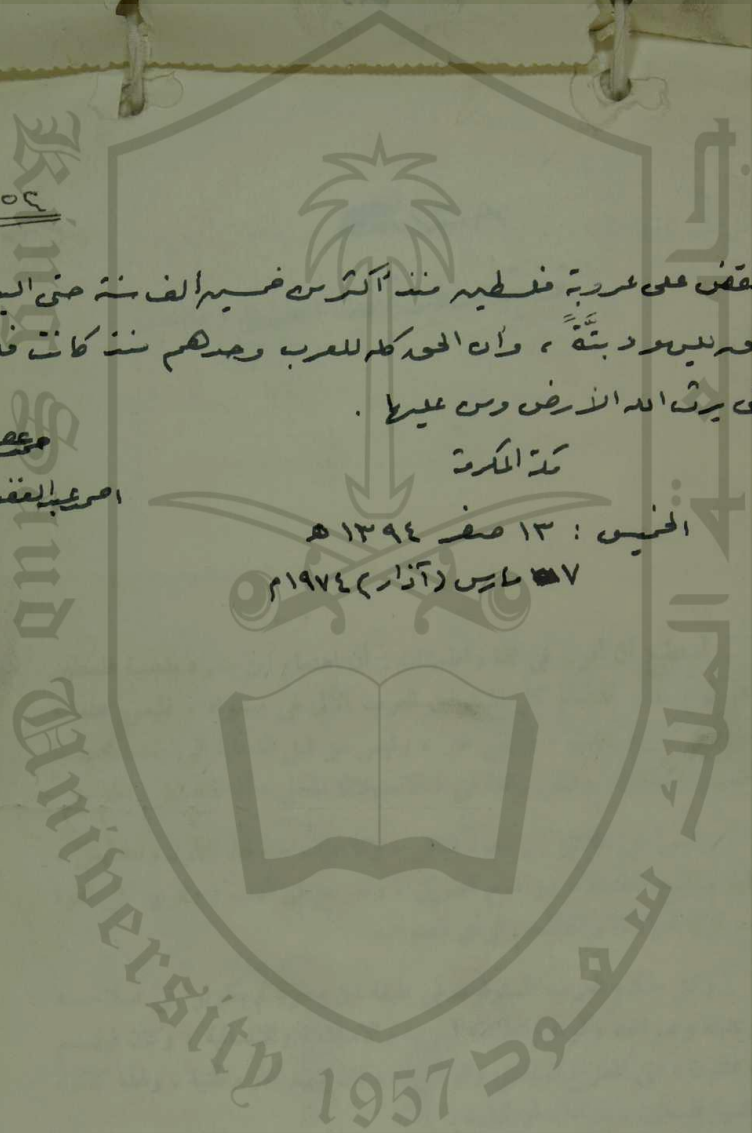 ٥٢
نقض على عروبة فلسطين منذ أكثر من خمسين ألف سنة حتى
لليهود بتَّةً ، وأن الحق كله للعرب وحدهم منذ كانت
يرث الله الأرض ومن عليها .
مكة المكرمة
احمد عبد الغفو
الخميس : ١٣ صفر ١٣٩٤ هـ
٧ مارس (آذار) ١٩٧٤م
King Saud University
1957
جامعة الملك سعود